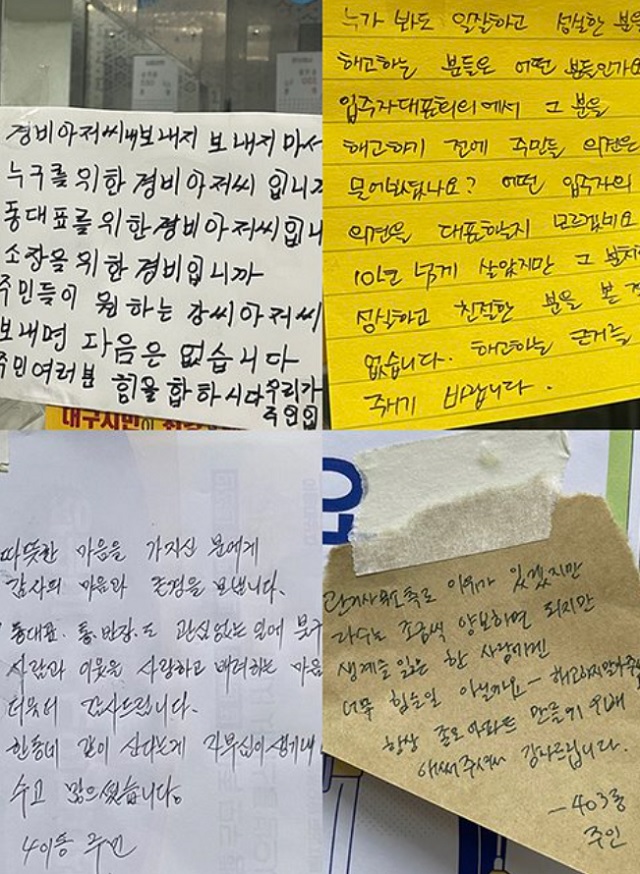 경비아저씨 내보내지 보내지 마서
누구를 위한 경비아저씨 입니까
동대표를 위한 경비아저씨 입니
소장을 위한 경비입니까
주민들이 원하는 강씨아저씨
보내면 다음은 없습니다
주민여러분 힘을 합하시다 우리가
주인입
대구시민이
누가 봐도 일잘하고 성실한 분을
해고하는 분들은 어떤 분들인가요
입주자대표회의에서 그 분을
해고하기 전에 주민들 의견은
물어보셨나요? 어떤 입주자의
의견을 대표하는지 모르겠네요
10년 넘게 살았지만 그 분처
성실하고 친절한 분을 본 적
없습니다. 해고하는 근거를
주시기 바랍니다.
따뜻한 마음을 가지신 분에게
감사의 마음과 존경을 보냅니다.
동대표. 통.반장.도 관심없는 일에
사람과 이웃을 사랑하고 배려하는 마음
더욱더 감사드립니다.
한동네 같이 산다는게 자부심이 생기네
수고 많으셨습니다。
401동 주민
관리사무소측도 이유가 있겠지만
다수는 조금씩 양보하면 되지만
생계를 잃은 한 사람에겐
너무 힘든일 아닐까요- 해고하지말아주
항상 좋은 아파트 만들기 위해
애써주셔서 감사드립니다.
- 403동
주민